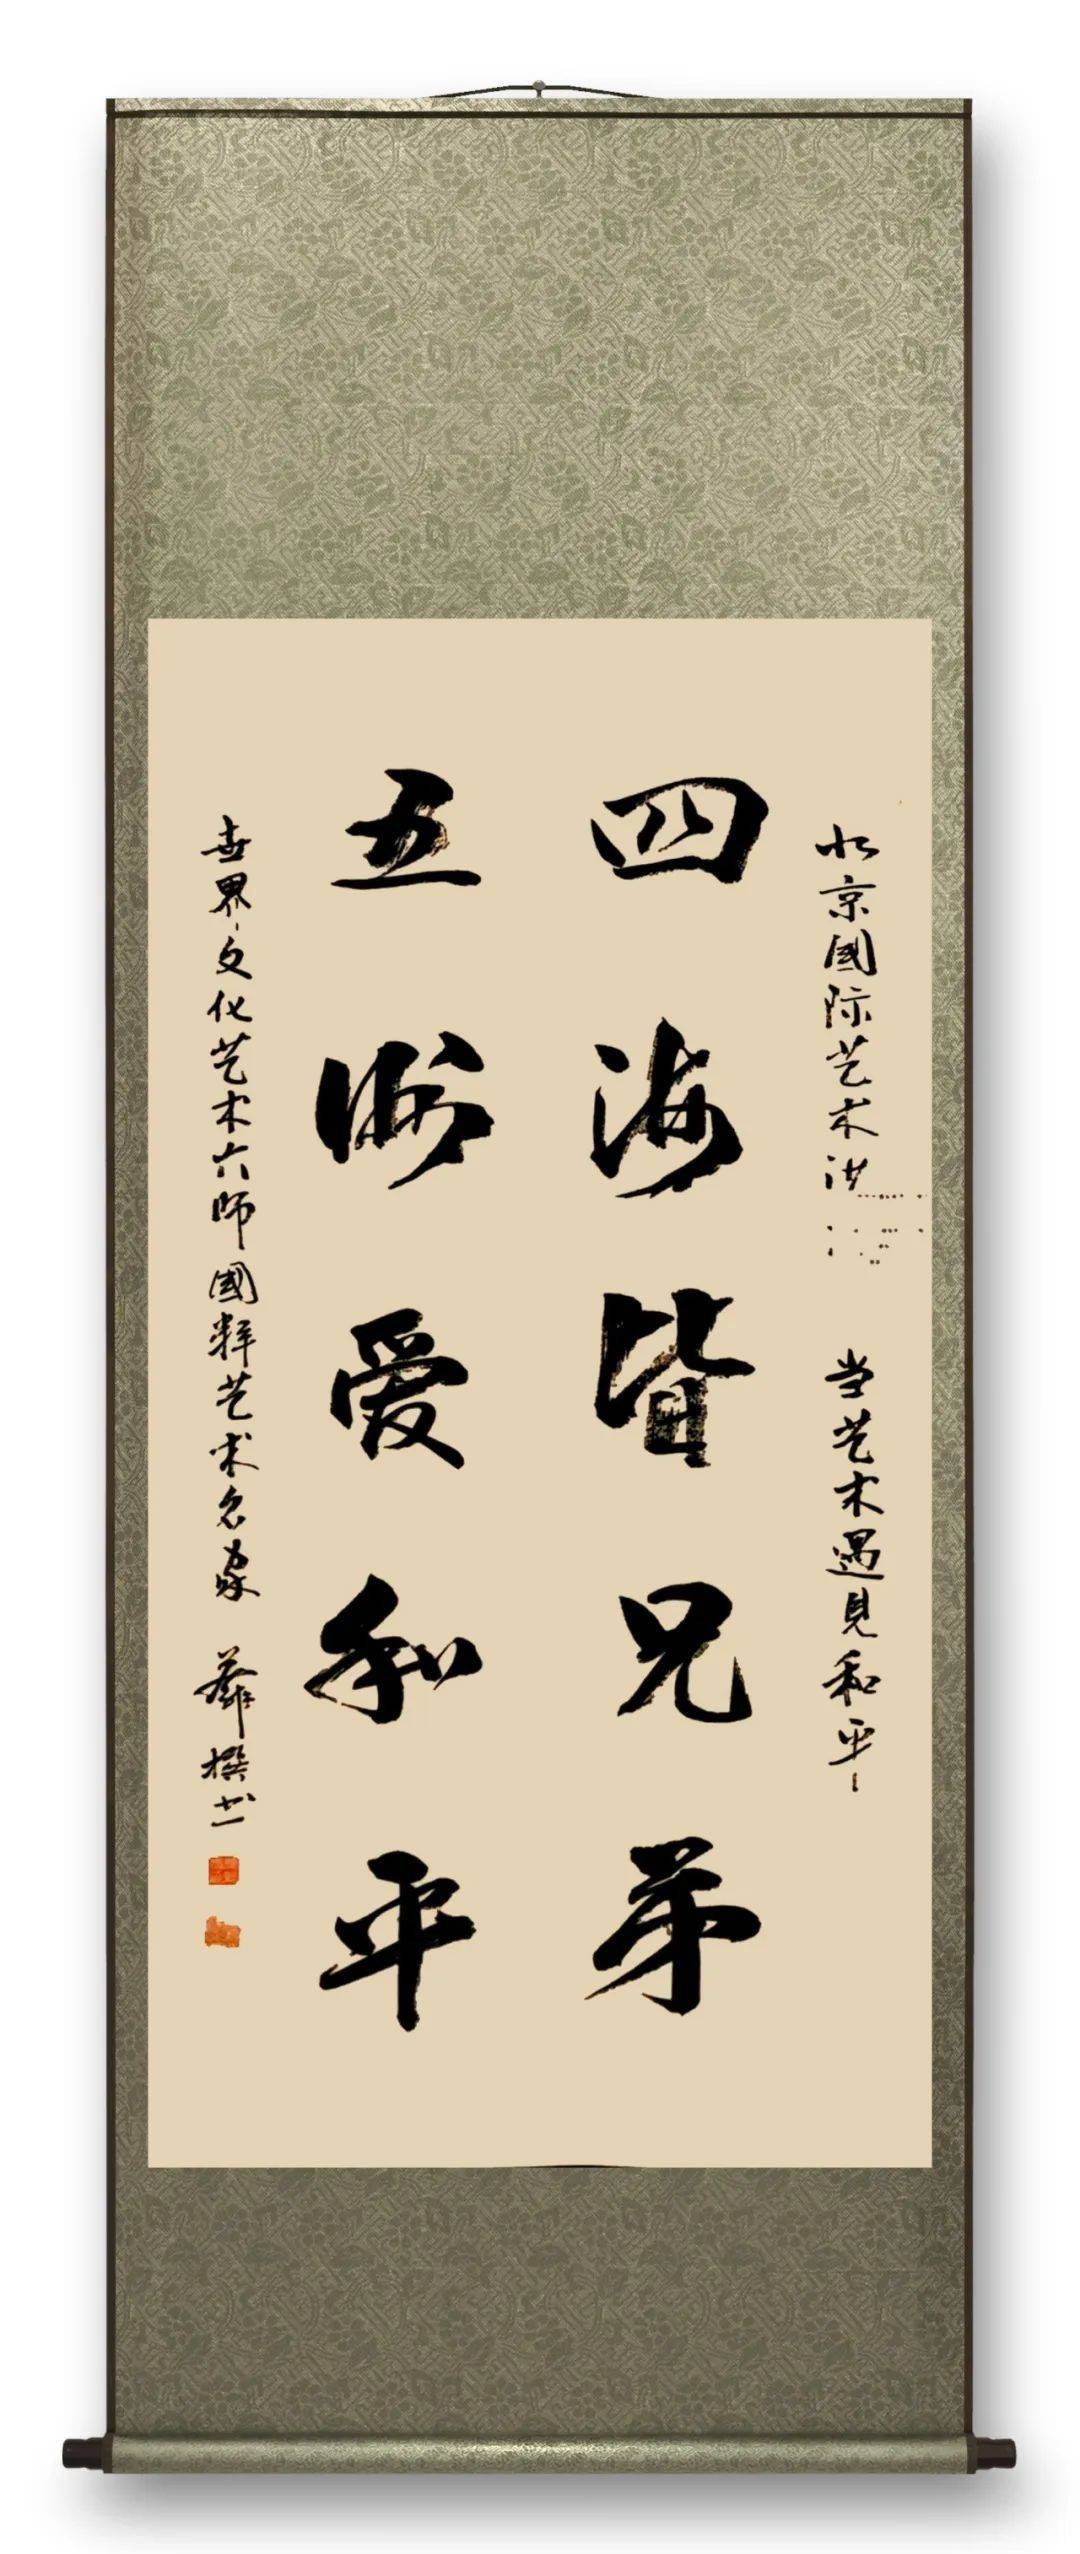 北京國际艺术 当艺术遇見和平
四海皆兄弟
五洲爱和平
世界文化艺术大师國粹艺术名家 薛撰书